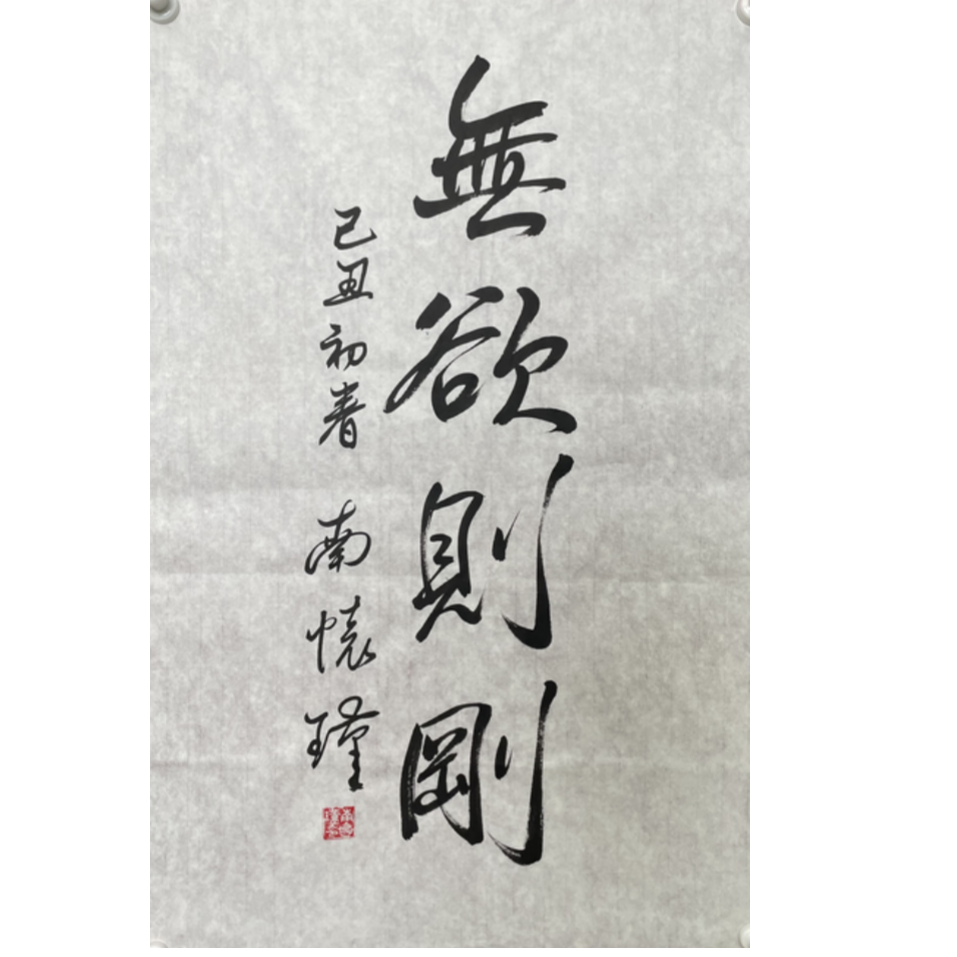 無欲則剛
己丑初春 南懷瑾